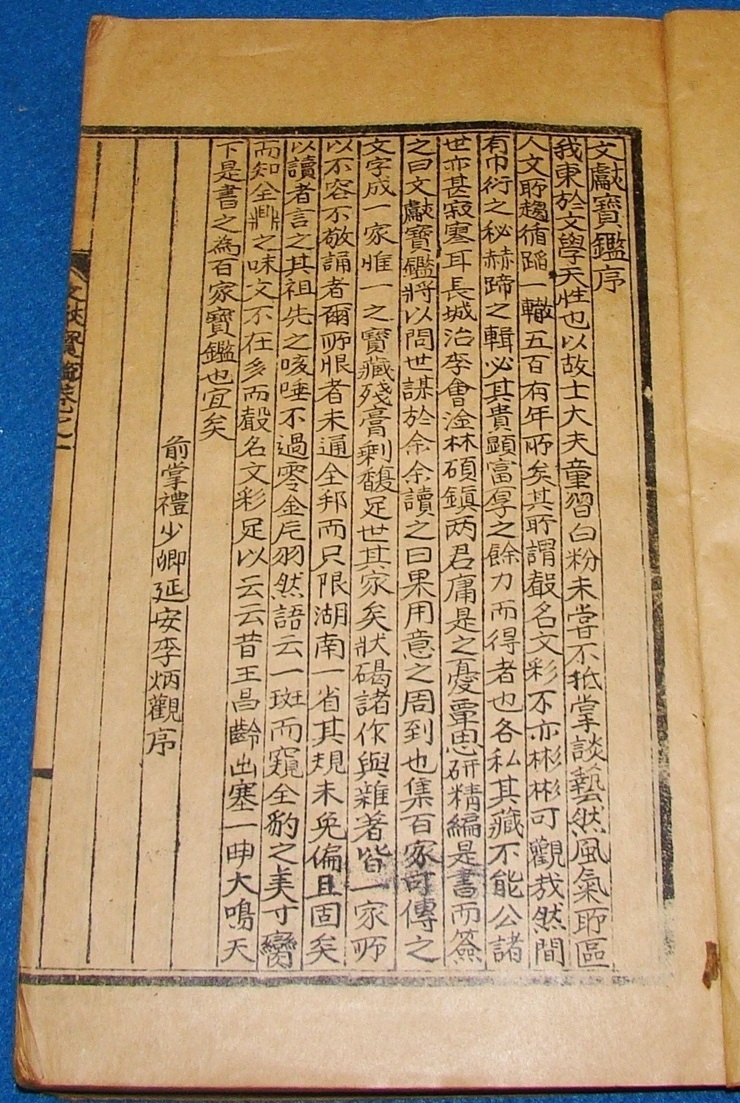 文獻寶鑑序
我東於文學天性也以故士大夫童習白粉未嘗不抵掌談藝然風氣所區
人文所趨循蹈一轍五百有年所矣其所謂聲名文彩不亦彬彬可觀哉然間
有巾衍之秘赫蹄之輯必其貴顯富厚之餘力而得者也各私其藏不能公諸
世亦甚寂寥耳長城治李會淦林碩鎭两君庸是之憂覃思研精編是書而簽
之曰文獻寶鑑將以問世謀於余余讀之曰果用意之周到也集百家可傳之
文字成一家惟一之寶藏殘膏剩馥足世其家矣狀碣諸作與雜著皆一家所
以不容不敬誦者爾所恨者未通全邦而只限湖南一省其規未免偏且固矣
以讀者言之其祖先之咳唾不過零金片羽然語云一斑而窺全豹之美寸臠
而知全鼎之味文不在多而聲名文彩足以云云昔王昌齡出塞一申大鳴天
下是書之為百家寶鑑也宜矣
前掌禮少卿延安李炳觀序
文獻寶鑑卷之一